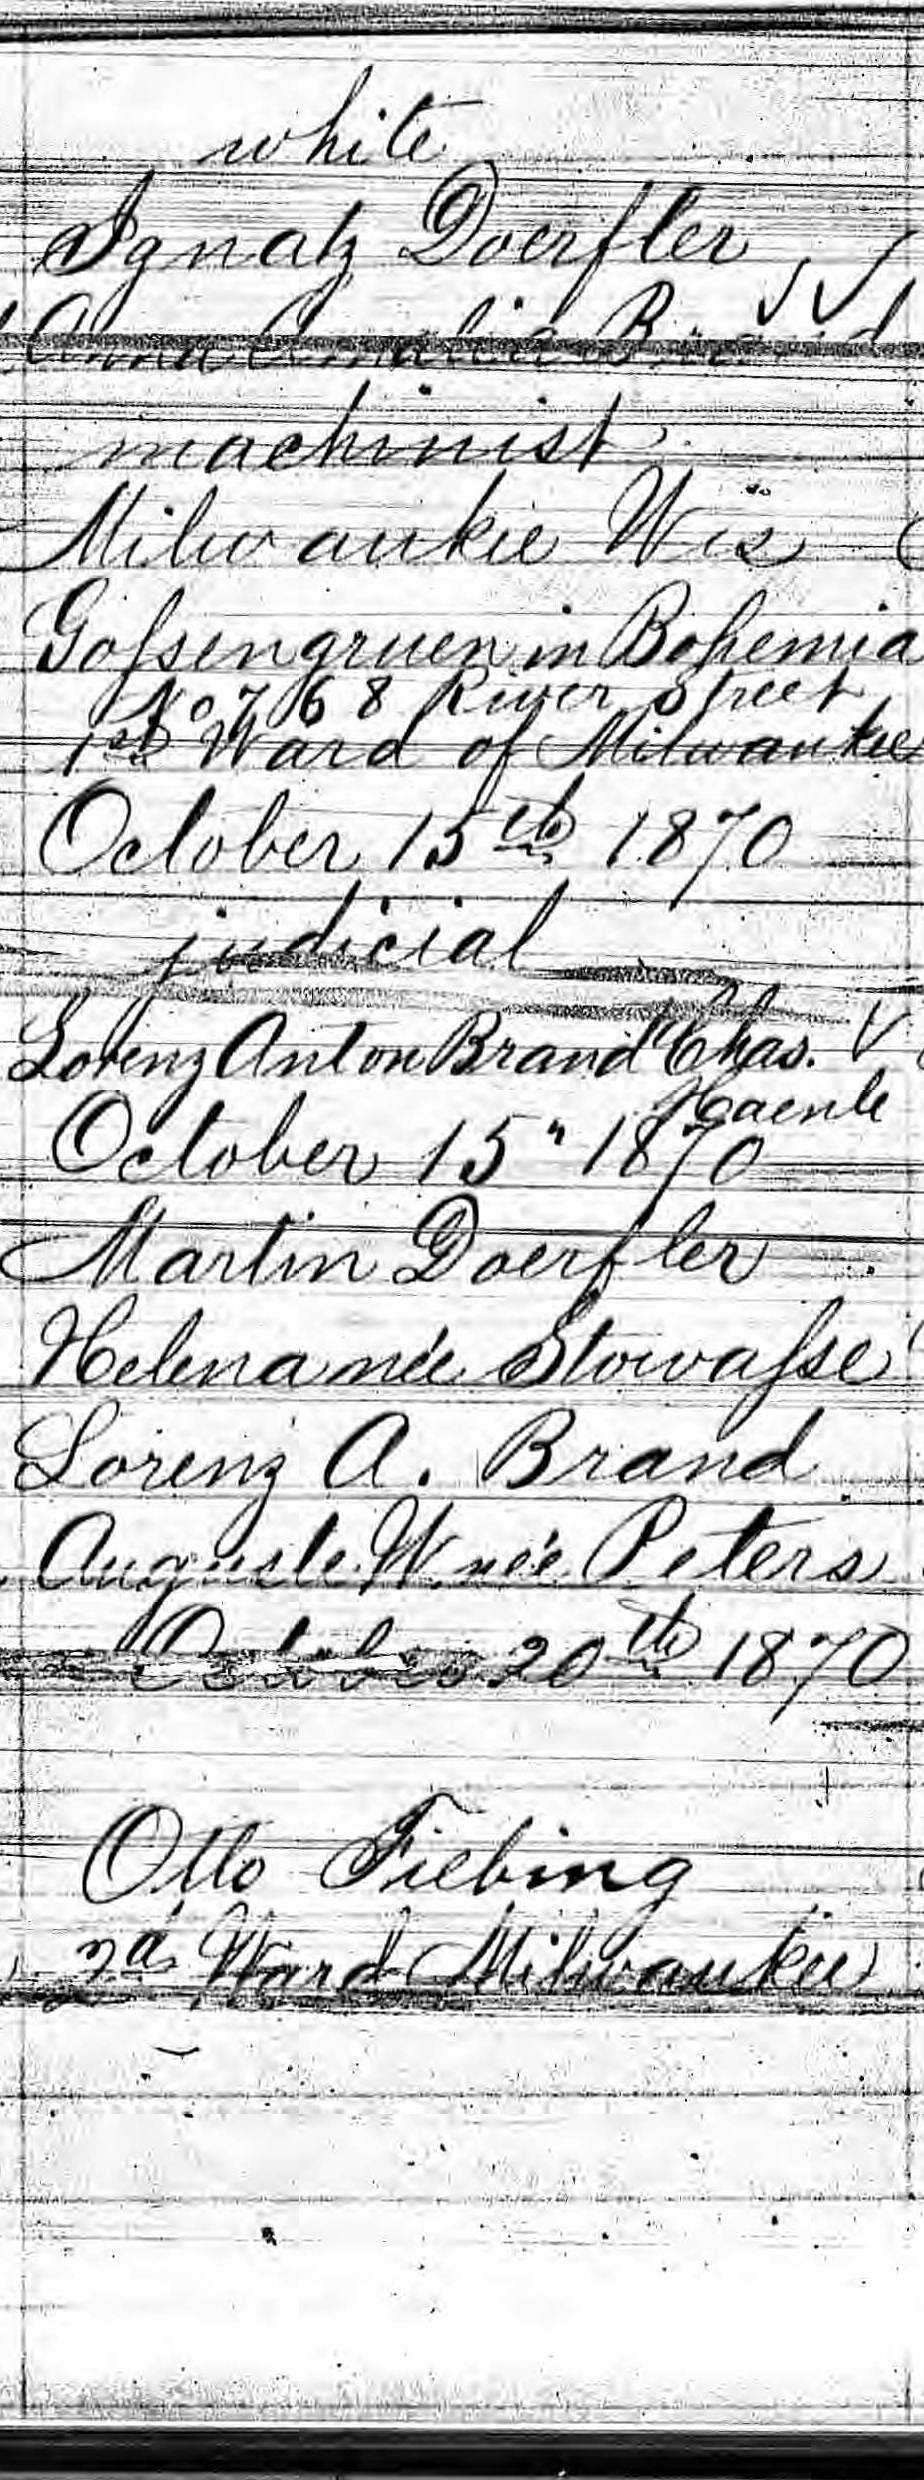 white
Ignatz Doerfler
Anna Amalia Brand
machinist
Milwaukie Wis
Gossengruen in Bohemia
No 768 River Street
1st Ward of Milwaukee
October 15th 1870
judicial
Lorenz Anton Brand Chas.
Haenle
October 15" 1870
Martin Doerfler
Helena née Stowasse
Lorenz A. Brand
Auguste W. née Peters
October 20th 1870
Otto Fiebing
2d Ward Milwaukee